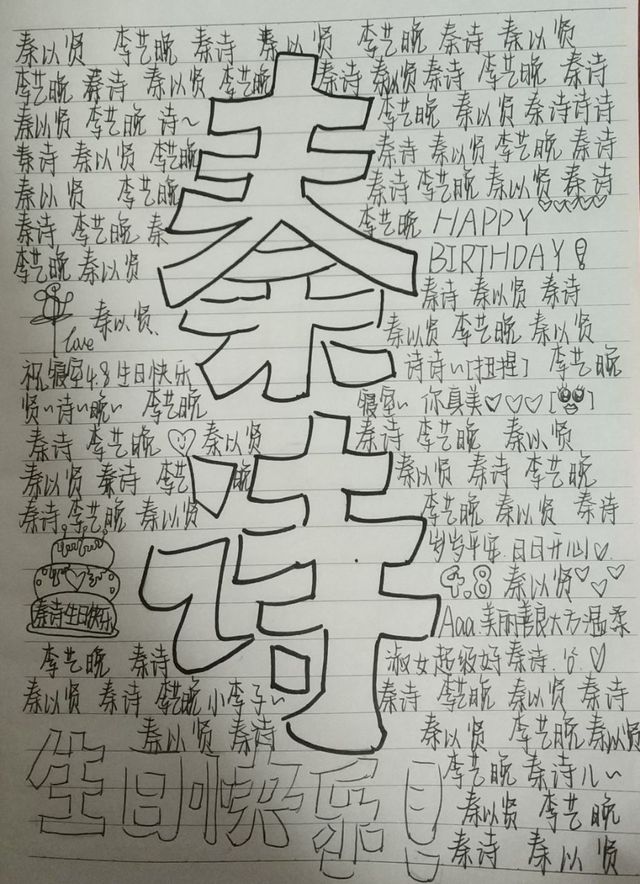 秦以贤 李艺晚 秦诗 秦以贤 李艺晚 秦诗 秦以贤
李艺晚 秦诗 秦以贤 李艺晚 秦诗 秦以贤 秦诗 李艺晚 秦诗
秦以贤 李艺晚 诗~ 李艺晚 秦以贤 秦诗诗诗
秦诗 秦以贤 李艺晚 秦诗 秦以贤 李艺晚 秦诗
秦以贤 李艺晚 秦诗 李艺晚 秦以贤 秦诗
秦诗 李艺晚 秦 李艺晚 HAPPY
李艺晚 秦以贤 BIRTHDAY!
秦
秦诗 秦以贤 秦诗
秦以贤 秦以贤 李艺晚 秦以贤
love
诗诗~[扭捏] 李艺晚
祝寝室4.8生日快乐
贤~诗~晚~ 李艺晚 寝室~ 你真美♡♡♡
秦诗 李艺晚 秦以贤 秦诗 李艺晚 秦以贤
秦以贤 秦诗 李艺晚 秦以贤 秦诗 李艺晚
秦诗 李艺晚 秦以贤 李艺晚 秦以贤 秦诗
诗
岁岁平安 日日开心♡
4.8 秦以贤♡♡♡
秦诗生日快乐 Aaa美丽善良大方温柔
李艺晚 秦诗 淑女超级好秦诗 ♡
秦以贤 秦诗 李艺晚 小李子~ 秦诗 李艺晚 秦以贤 秦诗
秦以贤 秦诗 秦以贤 李艺晚 秦以贤
生日快乐!
李艺晚 秦诗儿~
秦以贤 李艺晚
秦诗 秦以贤